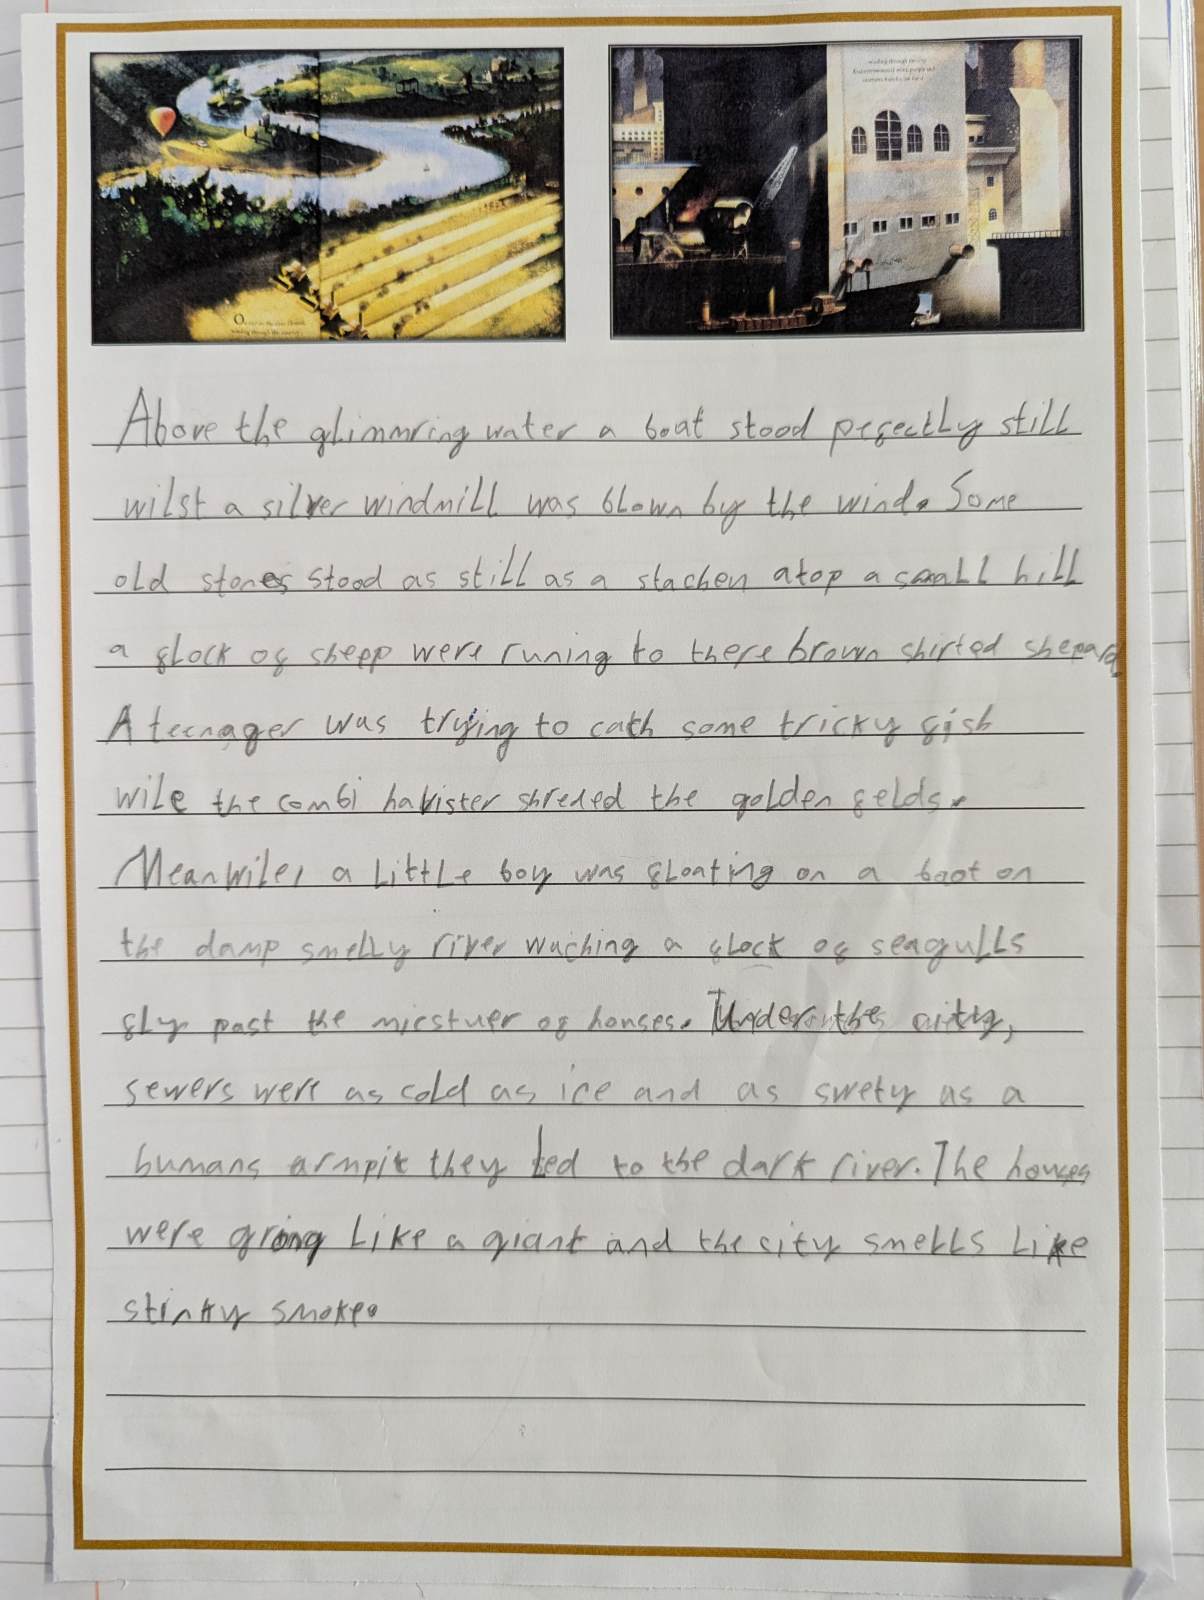 Above the glimmring water a boat stood pefectly still
wilst a silver windmill was blown by the wind. Some
old stones stood as still as a stachen atop a small hill
a flock of shepp were runing to there brown shirted shepard.
A teenager was trying to cath some tricky fish
wile the combi havister shreded the golden felds.
Meanwile, a little boy was floating on a baot on
the damp smelly river waching a flock of seagulls
fly past the micstuer of houses. Under the city,
sewers were as cold as ice and as swety as a
humans armpit they led to the dark river. The houses
were grong like a giant and the city smells like
stinky smoke.